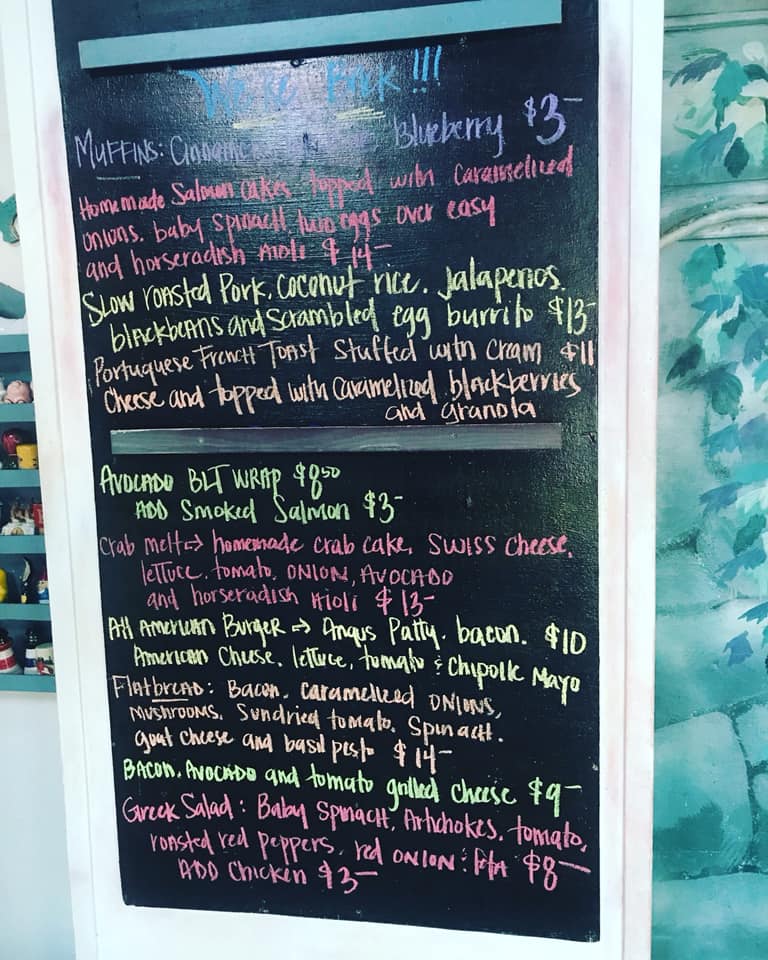 We're Back !!!
MUFFINS: Cinnamon Blueberry $3-
Homemade Salmon cakes topped with Caramelized
onions, baby spinach, two eggs over easy
and horseradish Aioli $14-
Slow roasted Pork, coconut rice, jalapenos,
blackbeans and scrambled egg burrito $13-
Portuguese French Toast Stuffed with Cream $11
Cheese and topped with Caramelized blackberries
and granola
AVOCADO BLT WRAP $8.50
ADD Smoked Salmon $3-
Crab Melt → homemade crab cake, SWISS cheese,
lettuce, tomato, ONION, AVOCADO
and horseradish Aioli $13-
All American Burger → Angus Patty, bacon, $10
American Cheese, lettuce, tomato & Chipotle Mayo
Flatbread: Bacon, caramelized ONIONS,
MUSHROOMS, Sundried tomato, Spinach,
goat cheese and basil pesto $14-
BACON, AVOCADO and tomato grilled cheese $9-
Greek Salad: Baby Spinach, Artichokes, tomato,
roasted red peppers, red ONION & feta $8-
ADD Chicken $3-